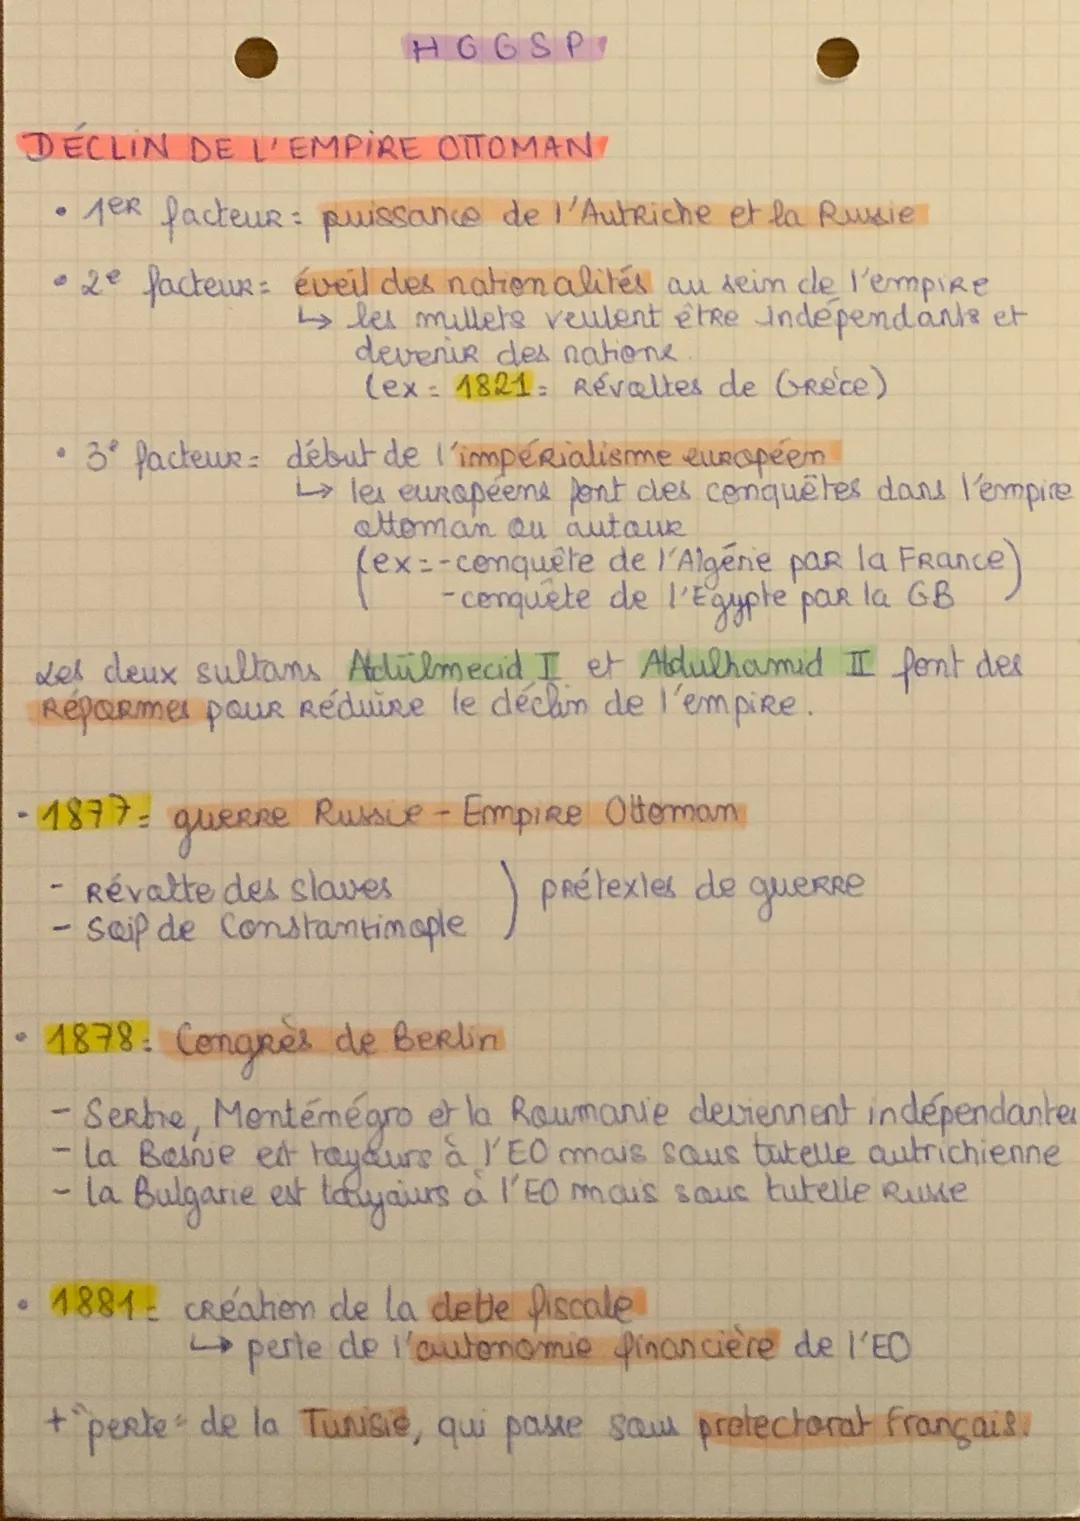 HGGSP
DÉCLIN DE L'EMPIRE OTTOMAN
• 1ER facteur : puissance de l'Autriche et la Russie
• 2e facteur : éveil des nationalités au sein de l'empire
↳ les millets veulent être indépendants et
devenir des nations.
(ex : 1821 : Révoltes de Grèce)
• 3e facteur : début de l'impérialisme européen
↳ les européens font des conquêtes dans l'empire
ottoman ou autour
(ex : - conquête de l'Algérie par la France)
- conquête de l'Egypte par la GB
Les deux sultans Abdülmecid I et Abdulhamid II font des
Réformes pour Réduire le déclin de l'empire.
• 1877 : guerre Russie - Empire Ottoman
- Révolte des slaves
- Soif de Constantinople
) prétextes de guerre
• 1878 : Congrès de Berlin
- Serbie, Monténégro et la Roumanie deviennent indépendantes
- la Bosnie est toujours à l'EO mais sous tutelle autrichienne
- la Bulgarie est toujours à l'EO mais sous tutelle Russe
• 1881 : création de la dette fiscale
↳ perte de l'autonomie financière de l'EO
+ "perte" de la Tunisie, qui passe sous protectorat Français.